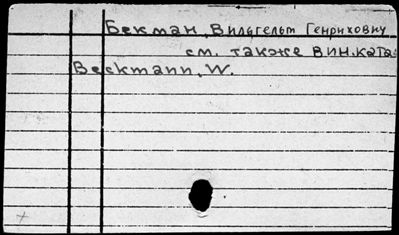 Бекман, Вильгельм Генрихович
см. также ин.ката-
Beckmann, W.